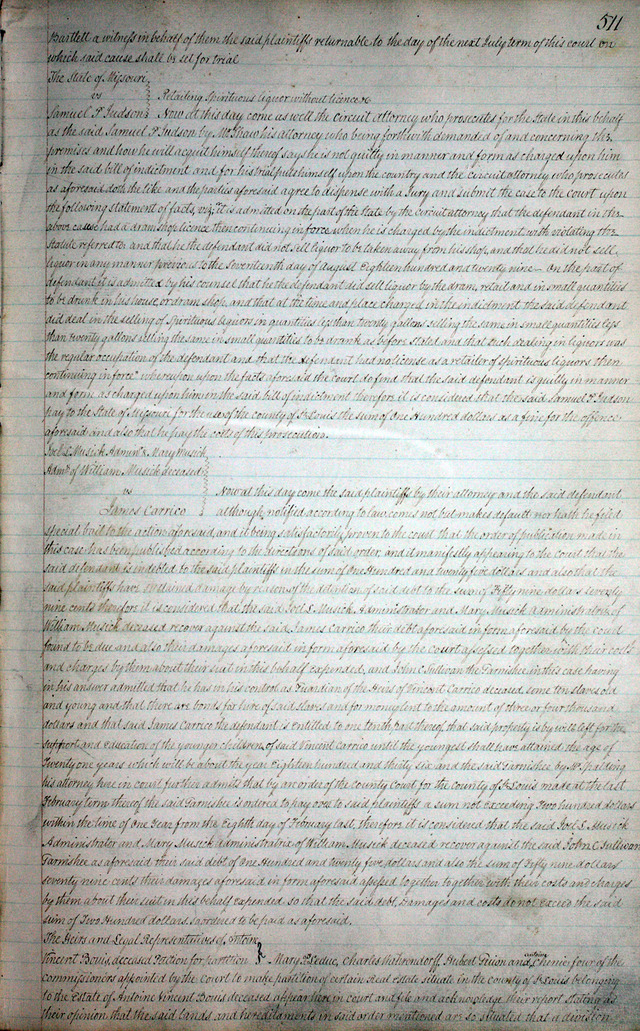 511
Bartlett a witness in behalf of them the said plaintiffs returnable to the day of the next July term of this court on
which said cause shall be set for trial
The State of Missouri
vs Retailing Spirituous liquor without licence
Samuel P. Judson Now at this day come as well the circuit attorney who prosecutes for the State in this behalf
as the said Samuel P. Judson by Mr Shaw his attorney who being forthwith demanded of and concerning the
premises and how he will acquit himself thereof says he is not guilty in manner and form as charged upon him
in the said bill of indictment and for his trial puts himself upon the country and the circuit attorney who prosecutes
as aforesaid doth the like and the parties aforesaid agree to dispense with a jury and submit the case to the court upon
the following statement of facts, viz, it is admitted on the part of the State by the circuit attorney that the defendant in the
above cause had a dramshop licence then continuing in force when he is charged by the indictment with violating the
Statute referred to and that he the defendant did not sell liquor to be taken away from his shop, and that he did not sell
liquor in any manner previous to the Seventeenth day of August Eighteen hundred and twenty nine - On the part of
defendant it is admitted by his counsel that he the defendant did sell liquor by the dram, retail and in small quantities
to be drunk in his house, or dram shop, and that at the time and place charged in the indictment the said defendant
did deal in the selling of Spirituous liquors in quantities less than twenty gallons selling the same in small quantities less
than twenty gallons selling the same in small quantities to be drank as before stated and that such dealing in liquors was
the regular occupation of the defendant and that the defendant had no license as a retailer of spirituous liquors then
continuing in force whereupon upon the facts aforesaid the court do find that the said defendant is guilty in manner
and form as charged upon him in the said bill of indictment therefore it is considered that the said Samuel P. Judson
pay to the State of Missouri for the use of the county of St Louis the sum of One Hundred dollars as a fine for the offence
aforesaid and also that he pay the costs of this prosecution.
Joel L. Musick Admr & Mary Musick
Admx of William Musick deceased
vs Now at this day come the said plaintiffs by their attorney and the said defendant
James Carrico although notified according to law comes not but makes default nor hath he filed
special bail to the action aforesaid, and it being satisfactorily proven to the court that the order of publication made in
this case has been published according to the directions of said order and it manifestly appearing to the court that the
said defendant is indebted to the said plaintiffs in the sum of One Hundred and twenty five dollars and also that the
said plaintiffs have sustained damage by reason of the detention of said debt to the sum of Fifty nine dollars seventy
nine cents therefore it is considered that the said Joel L. Musick Administrator and Mary Musick Administratrix of
William Musick deceased recover against the said James Carrico their debt aforesaid in form aforesaid by the court
found to be due and also their damages aforesaid in form aforesaid by the court assessed together with their costs
and charges by them about their suit in this behalf expended, and John C Sullivan the Garnishee in this case having
in his answer admitted that he has in his control as Guardian of the Heirs of Vincent Carrico deceased some ten slaves old
and young and that there are bonds for hire of said slaves and for money lent to the amount of three or four thousand
dollars and that said James Carrico the defendant is entitled to one tenth part thereof, that said property is by will left for the
support and education of the younger children of said Vincent Carrico until the youngest shall have attained the age of
Twenty one years which will be about the year Eighteen hundred and thirty six and the said Garnishee by Mr Spalding
his attorney here in court further admits that by an order of the county Court for the county of St Louis made at the last
February term thereof the said Garnishee is ordered to pay over to said plaintiffs a sum not exceeding Two hundred dollars
within the time of One Year from the Eighth day of February last, therefore it is considered that the said Joel L. Musick
Administrator and Mary Musick Administratrix of William Musick deceased recover against the said John C Sullivan
Garnishee as aforesaid their said debt of One Hundred and twenty five dollars and also the sum of Fifty nine dollars
seventy nine cents their damages aforesaid in form aforesaid assessed together together with their costs and charges
by them about their suit in this behalf expended so that the said debt, damages and costs do not exceed the said
sum of Two Hundred dollars so ordered to be paid as aforesaid.
The Heirs and Legal Representatives of Antoine
Vincent Bouis, deceased Petition for partition Mary P. Leduc, Charles Wahrendorff, Hubert Guion and Antoine Chenie four of the
commissioners appointed by the Court to make partition of certain Real estate situate in the county of St Louis belonging
to the Estate of Antoine Vincent Bouis deceased appear here in court and file and acknowledge their report stating as
their opinion that the said lands and hereditaments in said order mentioned are so situated that a division